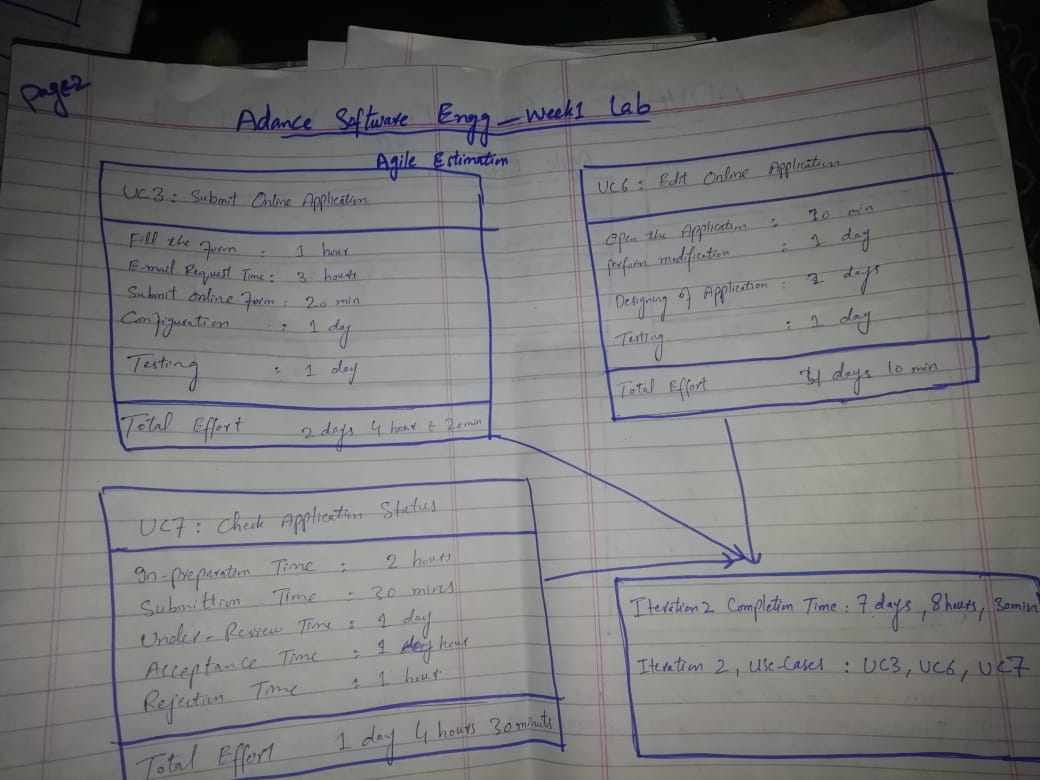 Page2
Adance Software Engg_Week1 Lab
Agile Estimation
UC3: Submit Online Application
Fill the Form : 1 hour
E-mail Request Time: 3 hours
Submit online Form: 20 min
Configuration : 1 day
Testing : 1 day
Total Effort 2 days 4 hour & 20min
UC6: Edit Online Application
Open the Application : 30 min
Perform modification : 1 day
Designing of Application : days
Testing : 1 day
Total Effort days 10 min
UC7: Check Application Status
In-preparation Time : 2 hours
Submittion Time : 30 mins
Under-Review Time : 1 day
Acceptance Time : 1 hour
Rejection Time : 1 hour
Total Effort 1 day 4 hours 30 minuts
Iteration2 Completion Time: 7 days, 8 hours, 30min
Iteration 2, Use-Cases : UC3, UC6, UC7